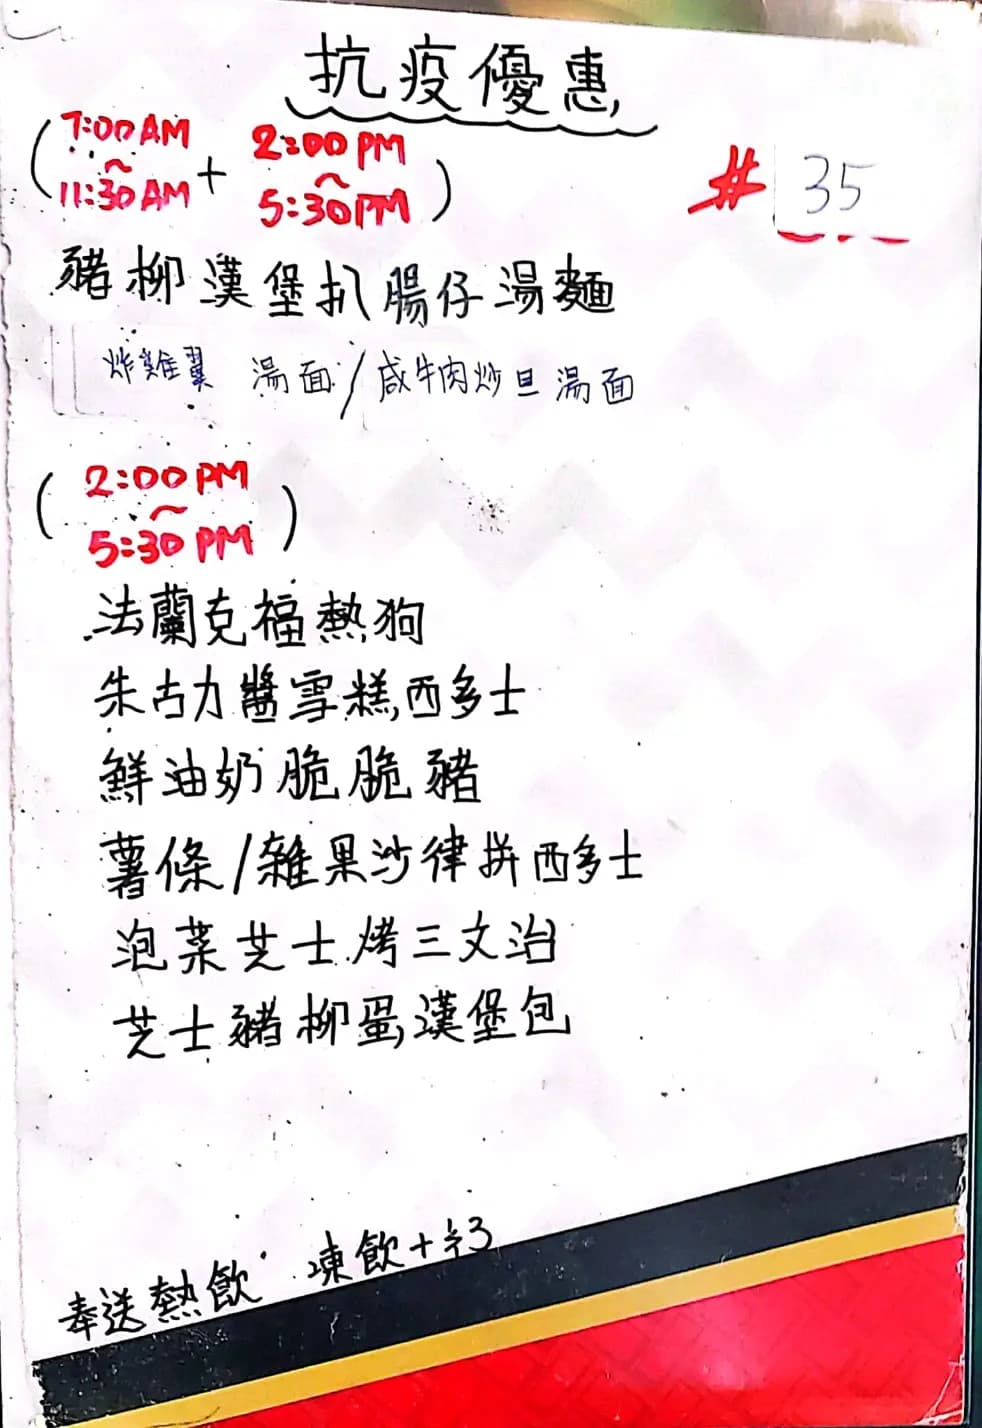 抗疫優惠
(7:00AM ~ 11:30AM + 2:00PM ~ 5:30PM)
#35
豬柳漢堡扒腸仔湯麵
炸雞翼 湯面/咸牛肉炒旦湯面
(2:00PM ~ 5:30PM)
法蘭克福熱狗
朱古力醬雪糕西多士
鮮油奶脆脆豬
薯條/雜果沙律拼西多士
泡菜芝士烤三文治
芝士豬柳蛋漢堡包
奉送熱飲 凍飲+$3